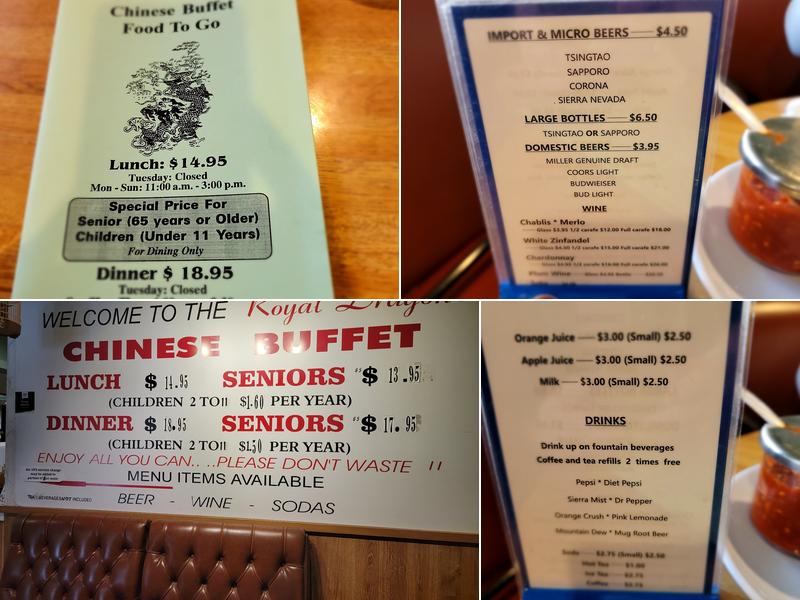 Chinese Buffet
Food To Go
Lunch: $14.95
Tuesday: Closed
Mon - Sun: 11:00 a.m. - 3:00 p.m.
Special Price For
Senior (65 years or Older)
Children (Under 11 Years)
For Dining Only
Dinner $ 18.95
Tuesday: Closed
IMPORT & MICRO BEERS $4.50
TSINGTAO
SAPPORO
CORONA
SIERRA NEVADA
LARGE BOTTLES $6.50
TSINGTAO OR SAPPORO
DOMESTIC BEERS $3.95
MILLER GENUINE DRAFT
COORS LIGHT
BUDWIEISER
BUD LIGHT
WINE
Chablis * Merlo
Glass $3.95 1/2 carafe $12.00 Full carafe $18.00
White Zinfandel
Glass $4.50 1/2 carafe $15.00 Full carafe $21.00
Chardonnay
Plum Wine
WELCOME TO THE Royal Dragon
CHINESE BUFFET
LUNCH $ 14.95 SENIORS 65 $ 13.95
(CHILDREN 2 TO 11 $1.60 PER YEAR)
DINNER $ 18.95 SENIORS 65 $ 17.95
(CHILDREN 2 TO 11 $1.50 PER YEAR)
ENJOY ALL YOU CAN.. ..PLEASE DON'T WASTE !!
MENU ITEMS AVAILABLE
BEER - WINE - SODAS
Orange Juice $3.00 (Small) $2.50
Apple Juice $3.00 (Small) $2.50
Milk $3.00 (Small) $2.50
DRINKS
Drink up on fountain beverages
Coffee and tea refills 2 times free
Pepsi * Diet Pepsi
Sierra Mist * Dr Pepper
Orange Crush * Pink Lemonade
Mountain Dew * Mug Root Beer
Soda $2.75 (Small) $2.50
Hot Tea $1.00
Ice Tea $2.75
Coffee $2.75